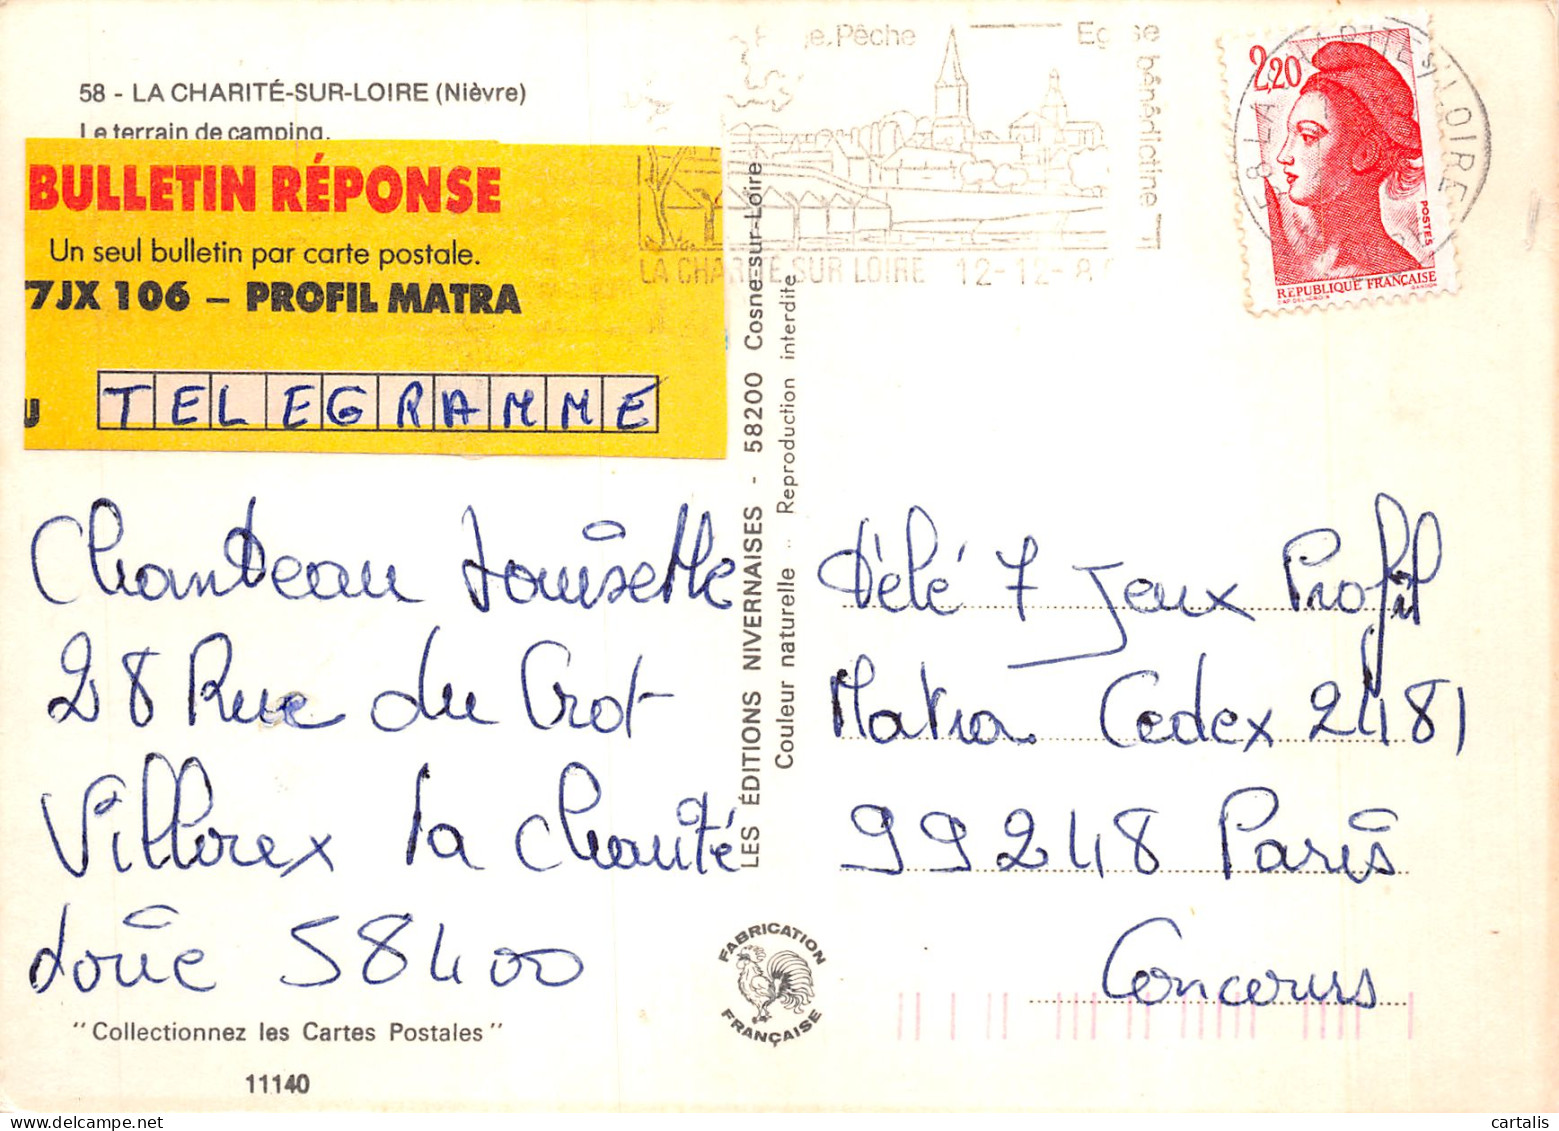 58 - LA CHARITÉ-SUR-LOIRE (Nièvre)
Le terrain de camping.
BULLETIN RÉPONSE
Un seul bulletin par carte postale.
7JX 106 – PROFIL MATRA
U TELEGRAMME
Pêche
bénédictine
LA CHARITE SUR LOIRE 12-12-8
2,20
POSTES
RÉPUBLIQUE FRANÇAISE
LOIRE
LES ÉDITIONS NIVERNAISES - 58200 Cosne-sur-Loire
Couleur naturelle - Reproduction interdite
Louisette
28 Rue du Crot
la Charité
58400
"Collectionnez les Cartes Postales"
11140
FABRICATION
FRANÇAISE
Télé 7 Jeux Profil
Matra Cedex 2481
99248 Paris
Concours
cartalis
www.delcampe.net